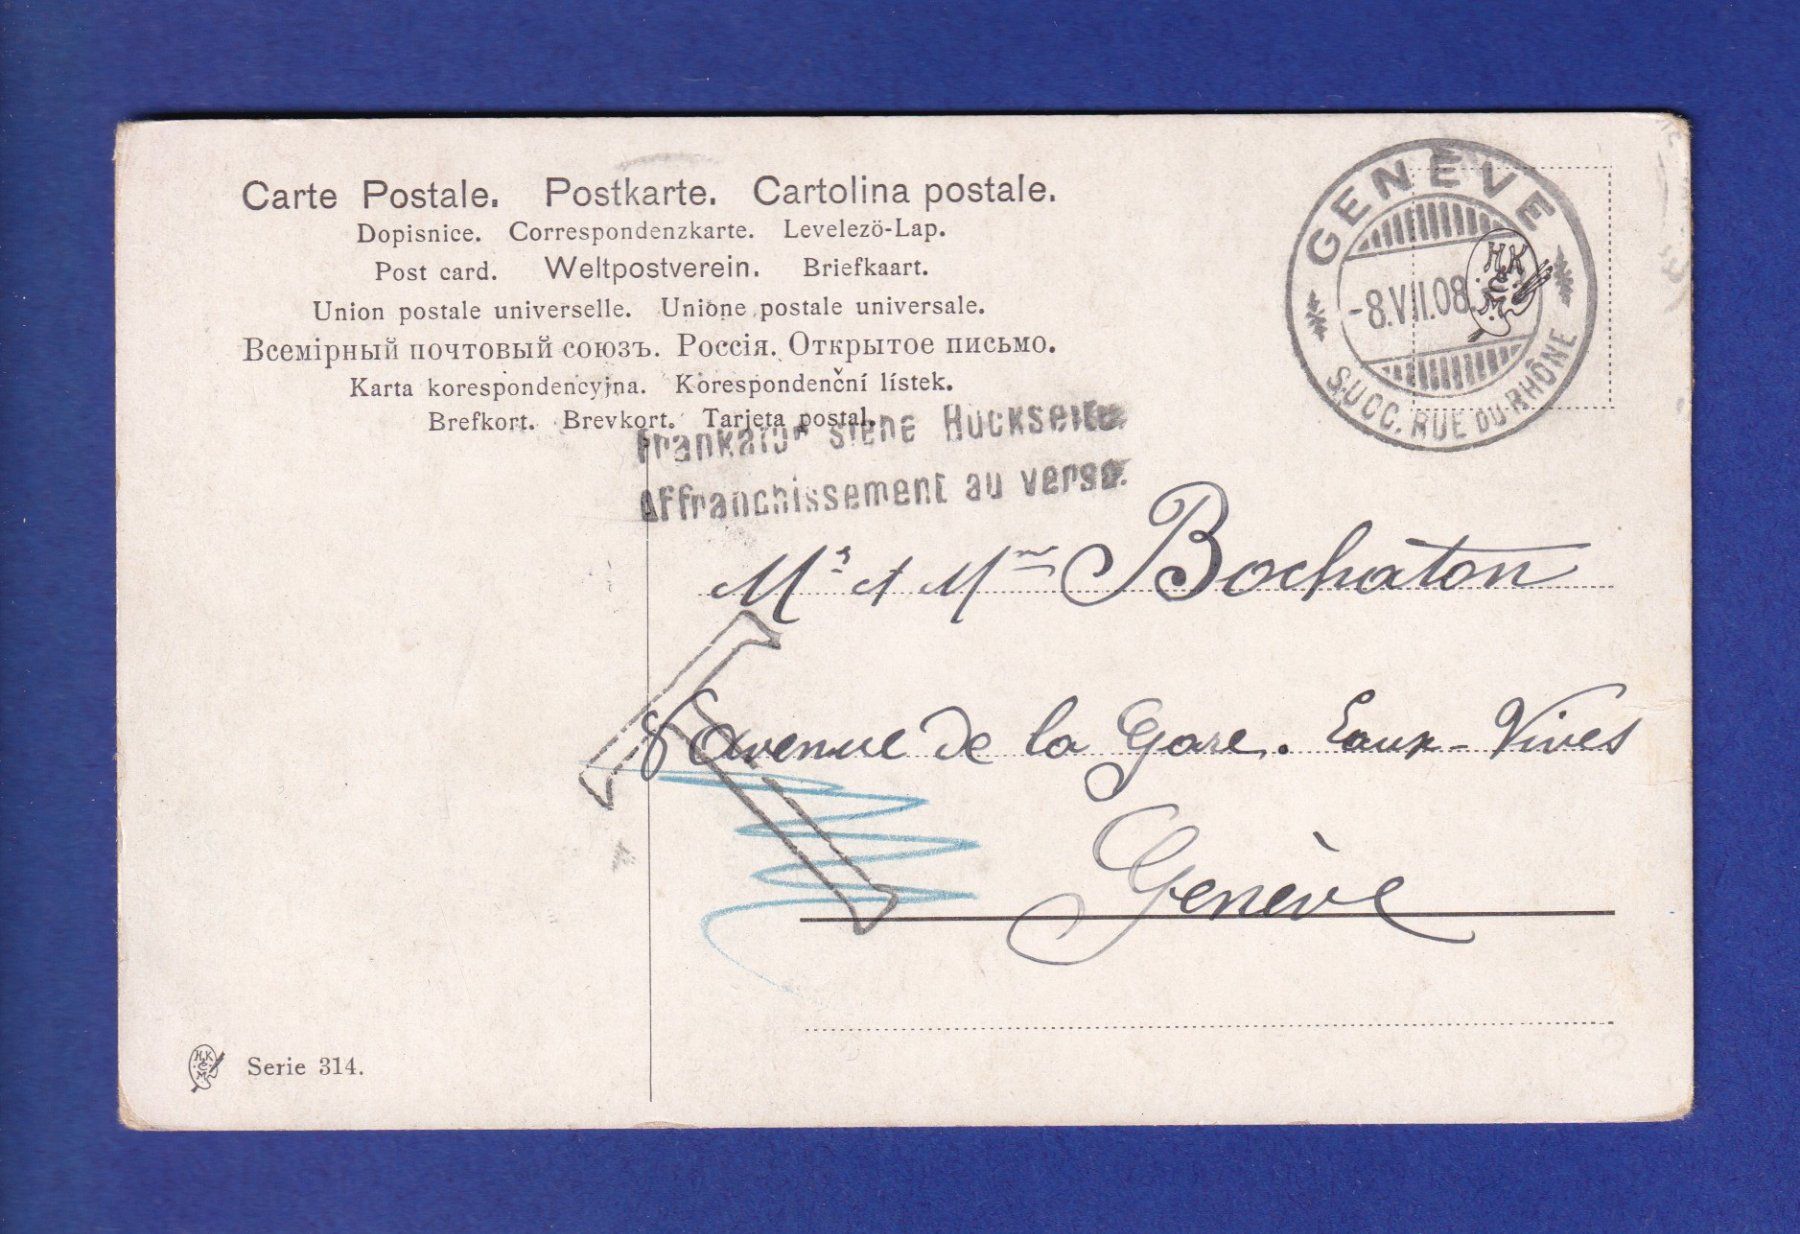 Carte Postale. Postkarte. Cartolina postale.
Dopisnice. Correspondenzkarte. Levelezö-Lap.
Post card. Weltpostverein. Briefkaart.
Union postale universelle. Unione postale universale.
Всемірный почтовый союзъ. Россія. Открытое письмо.
Karta korespondencyjna. Korespondenční lístek.
Brefkort. Brevkort. Tarjeta postal.
GENÈVE
-8.VII.08.
SUCC. RUE DU RHÔNE
H.K
&C
M
Frankatur siehe Rückseite
Affranchissement au verso.
Mr et Mme Bochaton
8 avenue de la Gare. Eaux-Vives
Genève
T
H.K
&C
M
Serie 314.